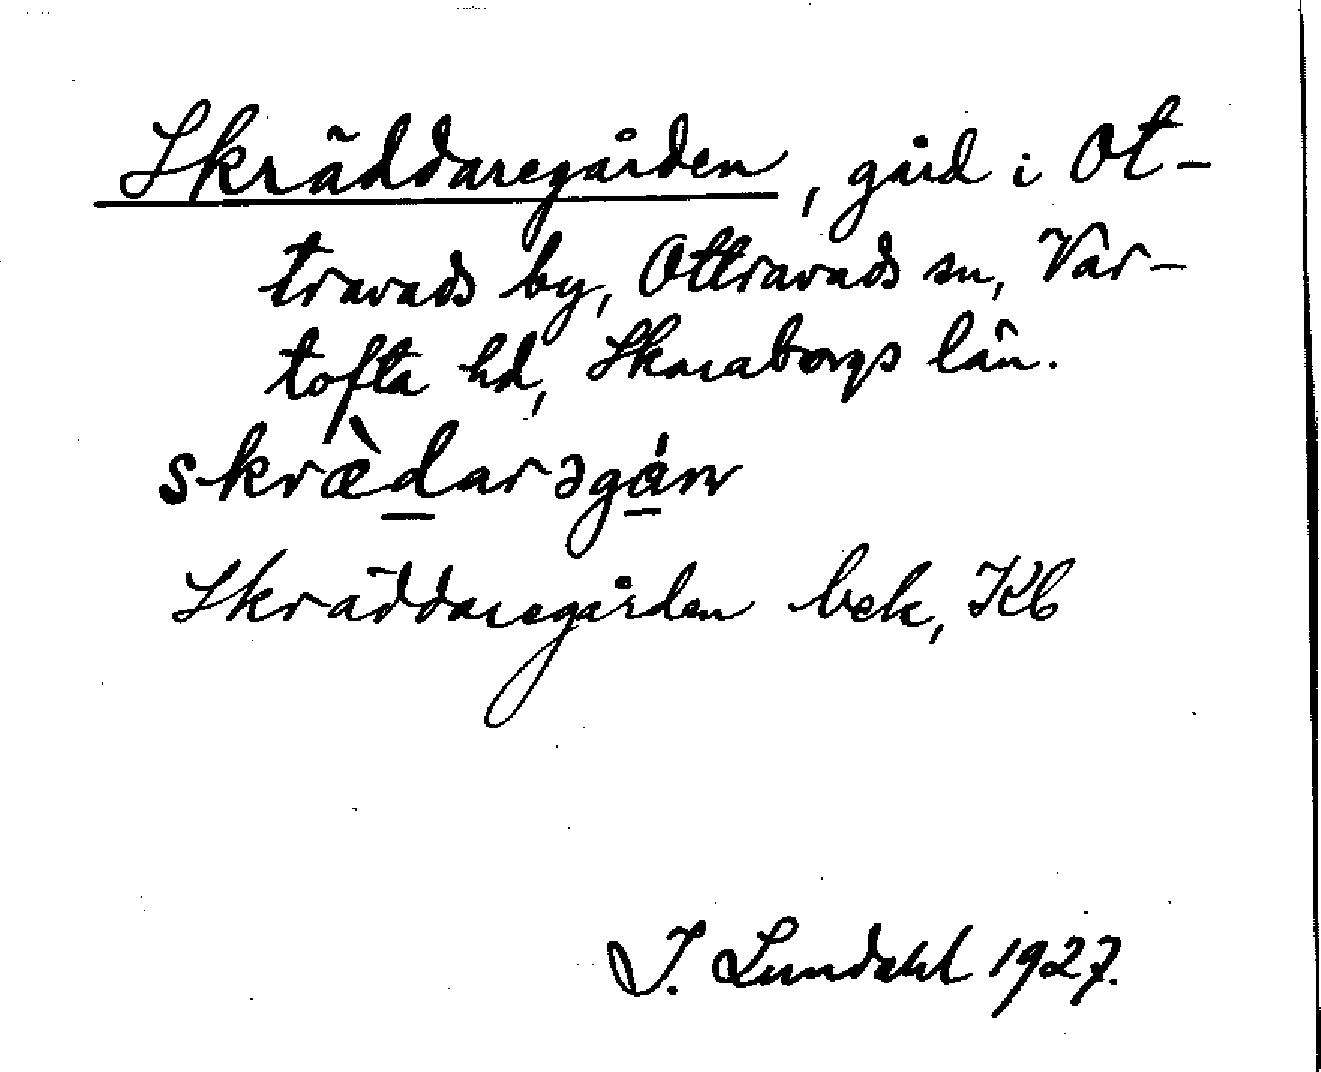 Skräddaregården, gård i Ot-
travads by, Ottravads sn, Var-
tofta hd, Skaraborgs län.
skræ̀darəgán
Skräddaregården bek, Kb
I. Lundahl 1927.